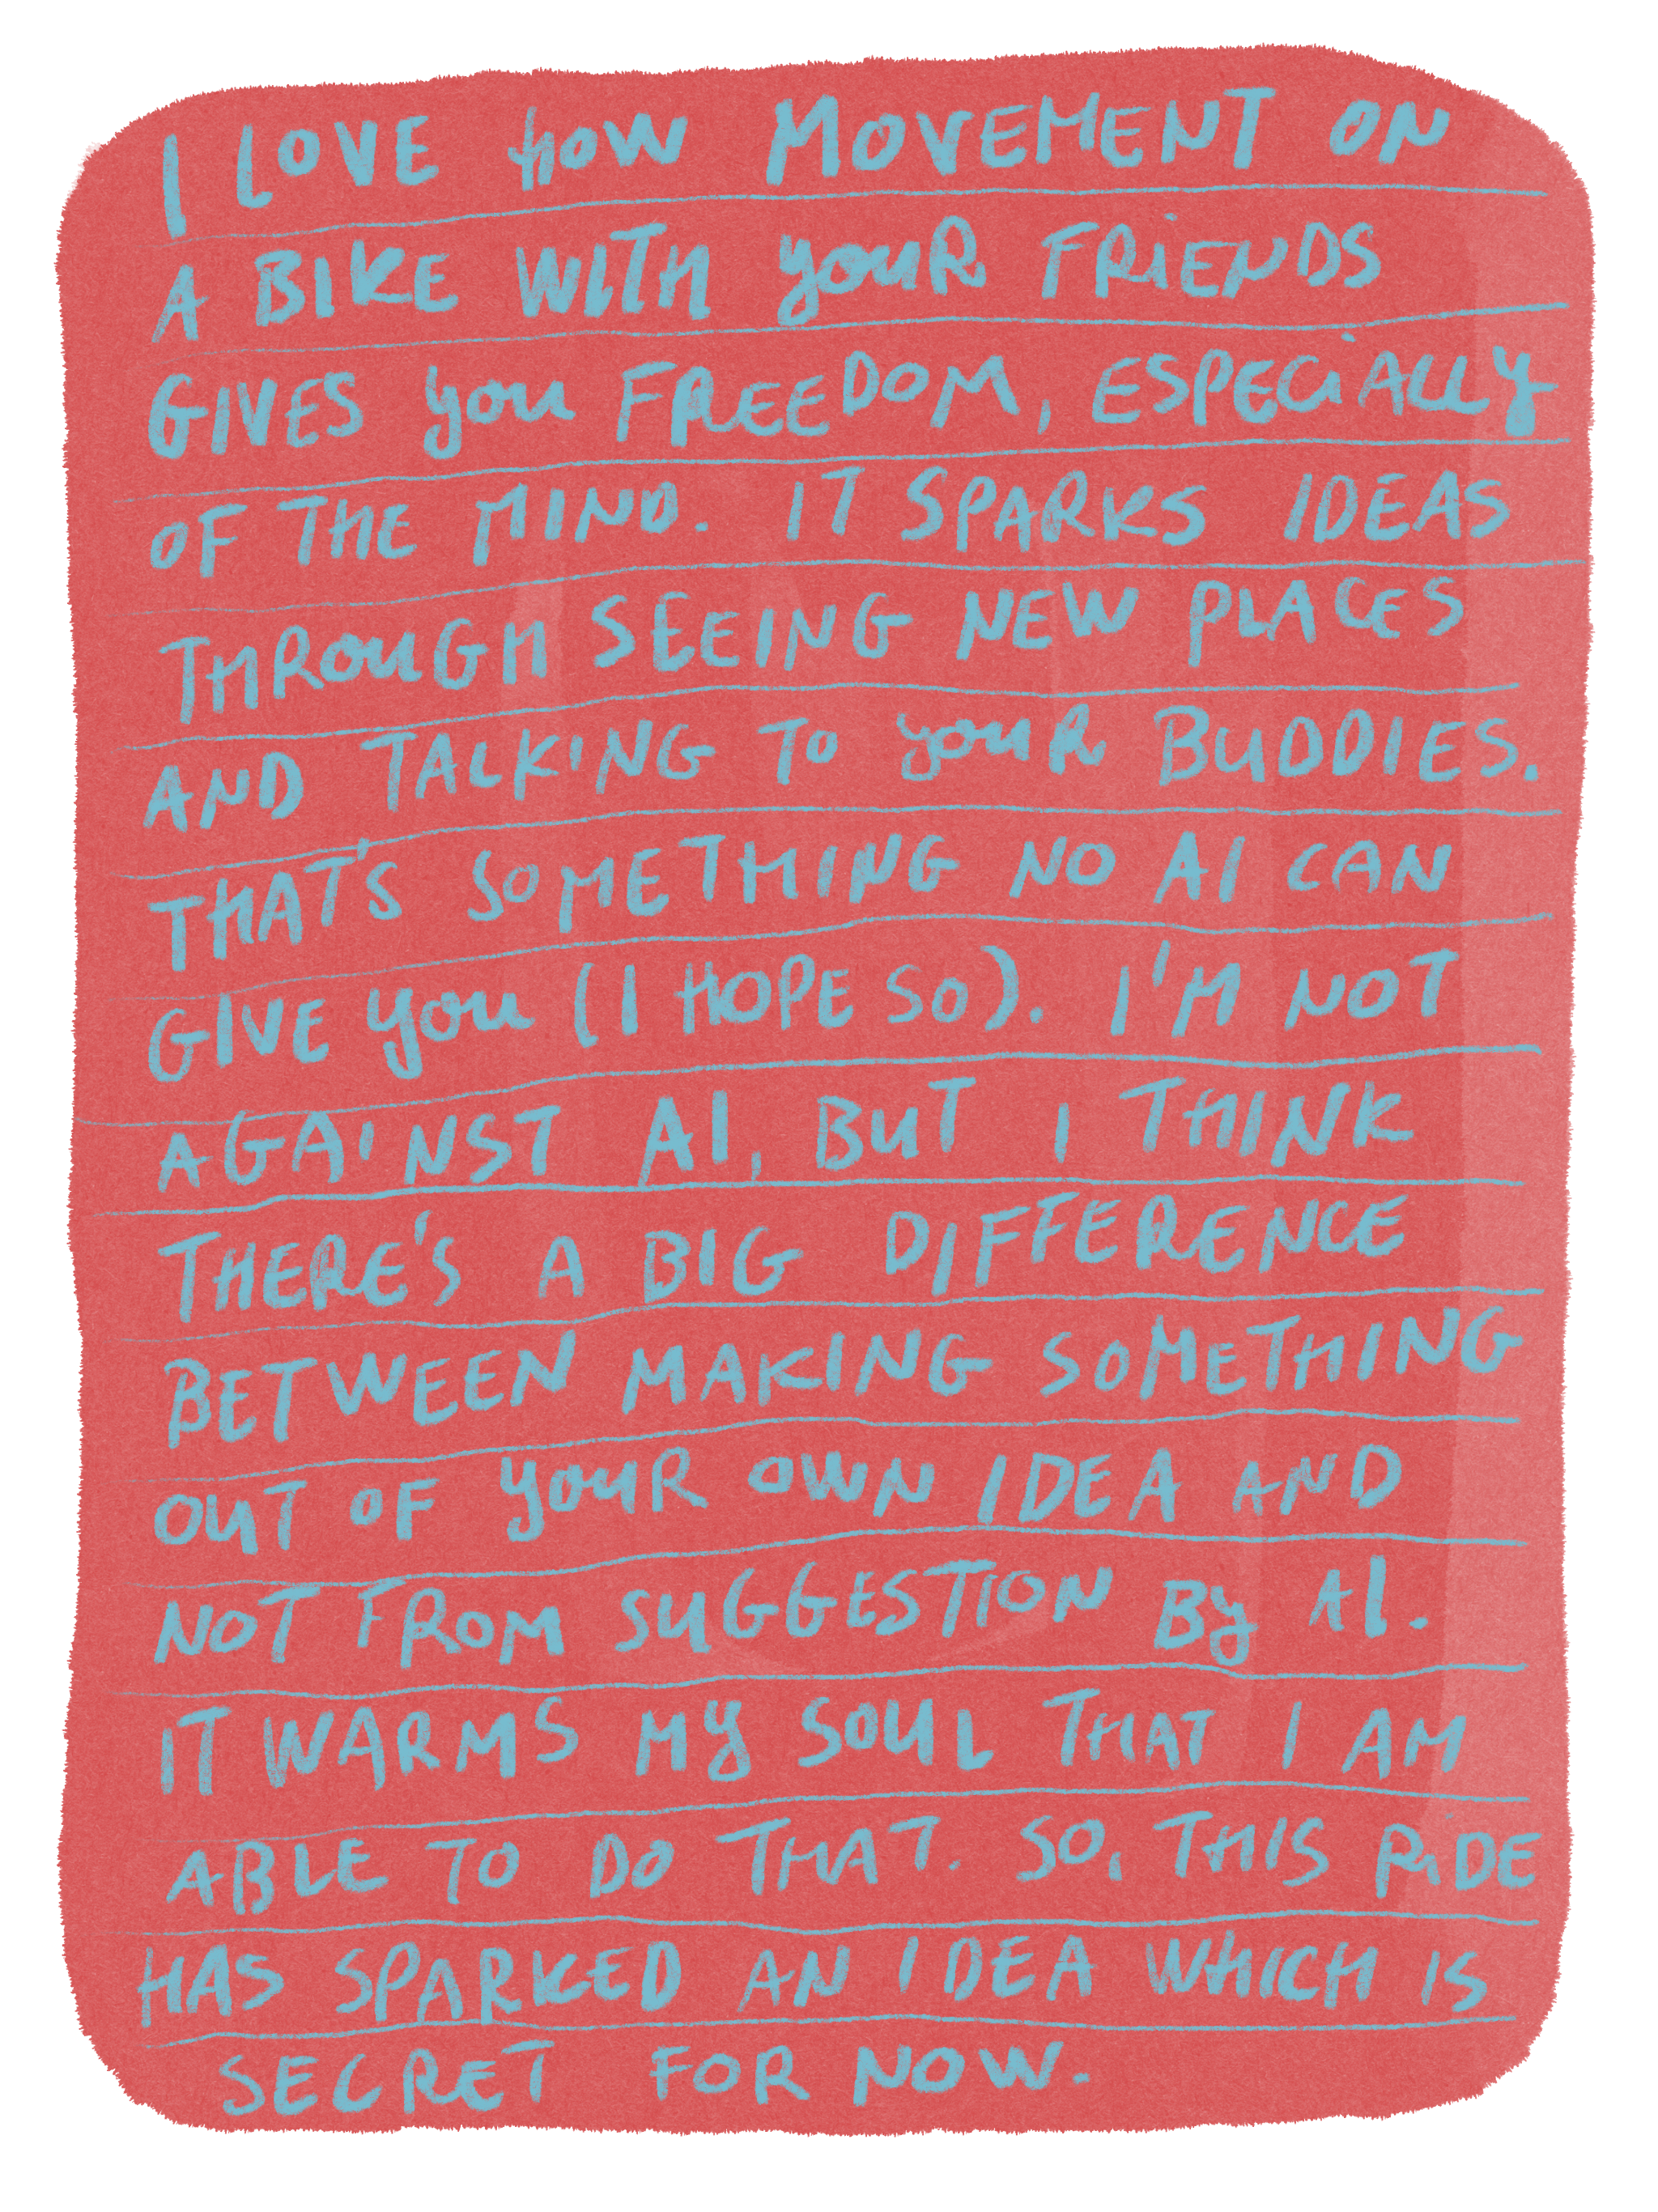 I LOVE HOW MOVEMENT ON
A BIKE WITH YOUR FRIENDS
GIVES YOU FREEDOM, ESPECIALLY
OF THE MIND. IT SPARKS IDEAS
THROUGH SEEING NEW PLACES
AND TALKING TO YOUR BUDDIES.
THAT'S SOMETHING NO AI CAN
GIVE YOU (I HOPE SO). I'M NOT
AGAINST AI, BUT I THINK
THERE'S A BIG DIFFERENCE
BETWEEN MAKING SOMETHING
OUT OF YOUR OWN IDEA AND
NOT FROM SUGGESTION BY AI.
IT WARMS MY SOUL THAT I AM
ABLE TO DO THAT. SO, THIS RIDE
HAS SPARKED AN IDEA WHICH IS
SECRET FOR NOW.